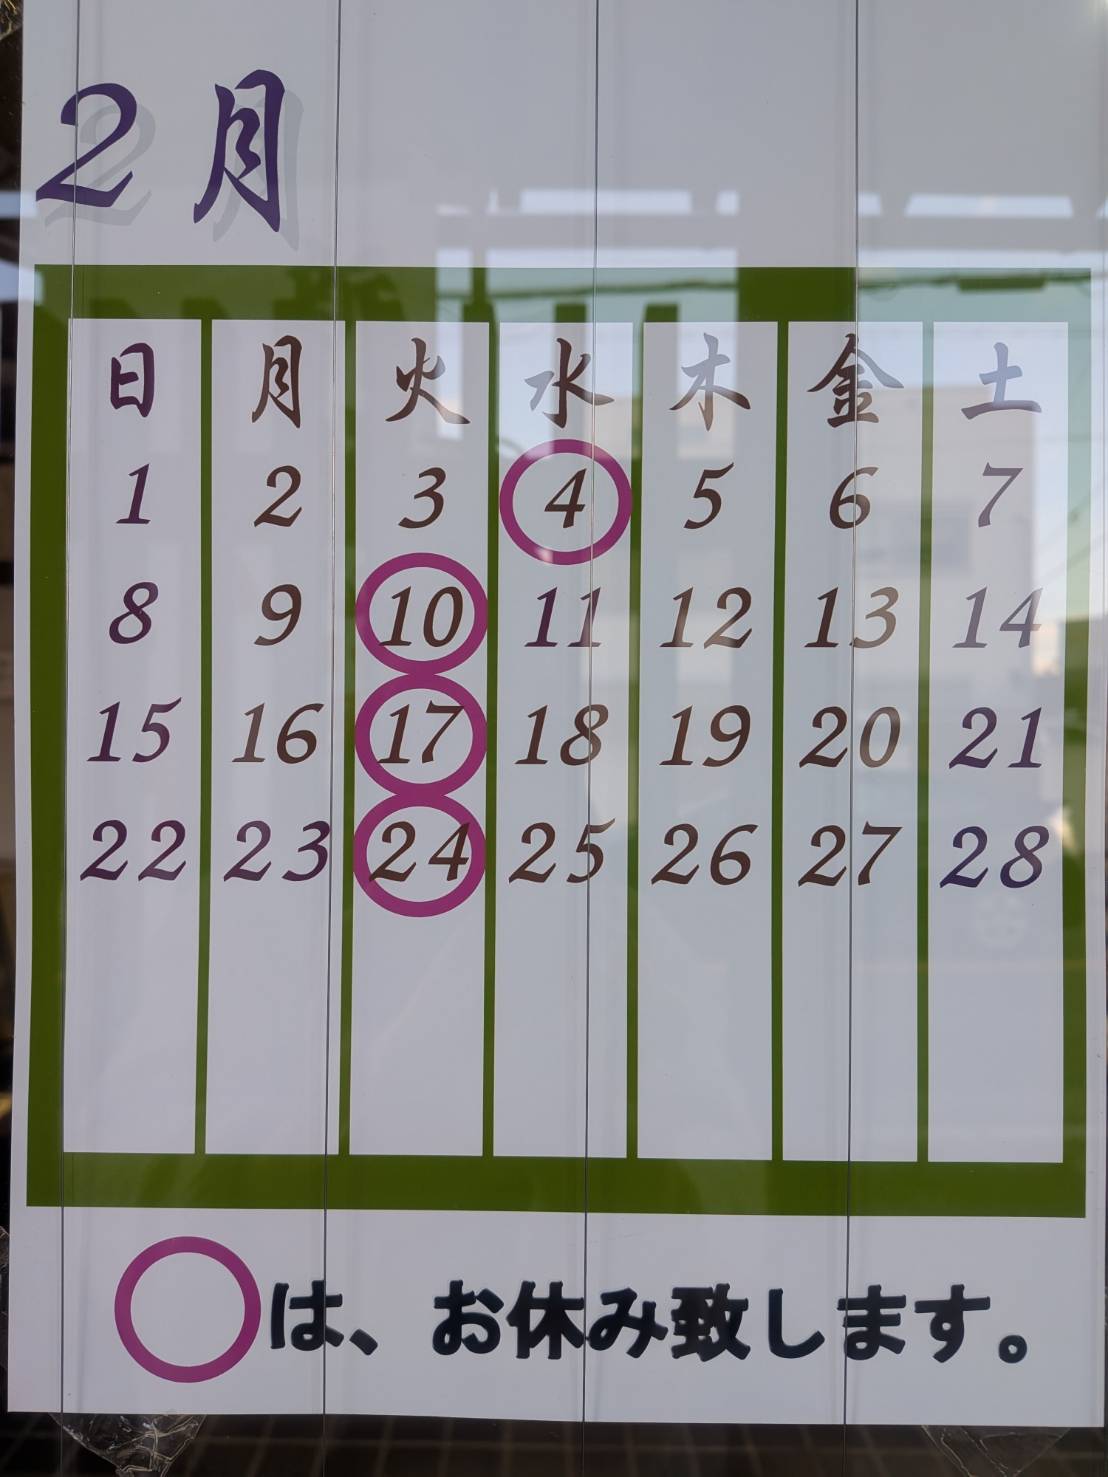 2月
日 月 火 水 木 金 土
1 2 3 4 5 6 7
8 9 10 11 12 13 14
15 16 17 18 19 20 21
22 23 24 25 26 27 28
は、お休み致します。